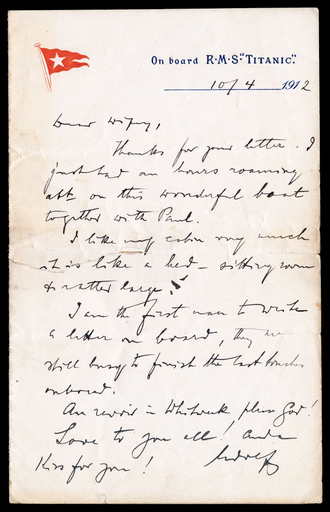 On board R·M·S·"TITANIC".
10/4 1912
Dear wifey,
Thanks for your letter. I
just had an hours roaming
abt on this wonderful boat
together with Paul.
I like my cabin very much
it is like a bed-sitting room
& rather large.
I am the first man to write
a letter on board, they are
still busy to finish the last touches
onboard.
Au revoir in please God!
Love to you all! and a
Kiss for you!